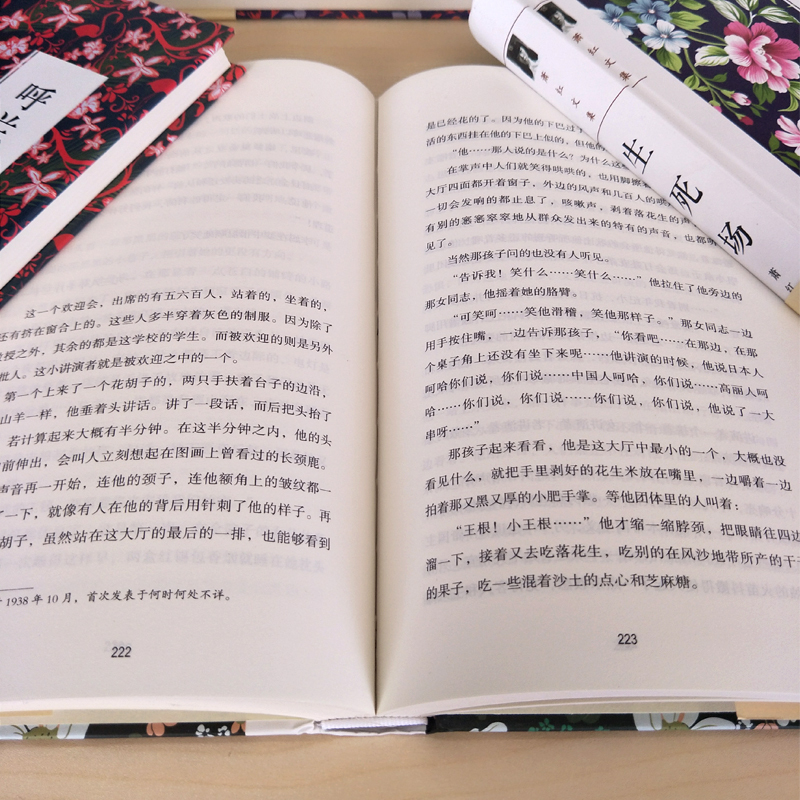 呼
萧红文集
萧红文集
生死场
萧红
这一个欢迎会，出席的有五六百人，站着的，坐着的，
还有挤在窗台上的。这些人多半穿着灰色的制服。因为除了
教授之外，其余的都是这学校的学生。而被欢迎的则是另外
批人。这小讲演者就是被欢迎之中的一个。
第一个上来了一个花胡子的，两只手扶着台子的边沿，
山羊一样，他垂着头讲话。讲了一段话，而后把头抬了
若计算起来大概有半分钟。在这半分钟之内，他的头
前伸出，会叫人立刻想起在图画上曾看过的长颈鹿。
声音再一开始，连他的颈子，连他额角上的皱纹都一
了一下，就像有人在他的背后用针刺了他的样子。再
胡子，虽然站在这大厅的最后的一排，也能够看到
1938年10月，首次发表于何时何处不详。
222
是已经花的了。因为他的下巴过于
活的东西挂在他的下巴上似的，但他的
“他……那人说的是什么？为什么这
在掌声中人们就笑得哄哄的，也用脚擦着
大厅四面都开着窗子，外边的风声和几百人的哄
一切会发响的都止息了，咳嗽声，剥着落花生的声
有别的窸窸窣窣地从群众发出来的特有的声音，也都
见了。
当然那孩子问的也没有人听见。
“告诉我！笑什么……笑什么……”他拉住了他旁边的
那女同志，他摇着她的胳臂。
“可笑呵……笑他滑稽，笑他那样子。”那女同志一边
用手按住嘴，一边告诉那孩子，“你看吧……在那边，在那
个桌子角上还没有坐下来呢……他讲演的时候，他说日本人
呵哈你们说，你们说……中国人呵哈，你们说……高丽人呵
哈……你们说，你们说……你们说，你们说，他说了一大
串呀……”
那孩子起来看看，他是这大厅中最小的一个，大概也没
看见什么，就把手里剥好的花生米放在嘴里，一边嚼着一边
拍着那又黑又厚的小肥手掌。等他团体里的人叫着：
“王根！小王根……”他才缩一缩脖颈，把眼睛往四边
溜一下，接着又去吃落花生，吃别的在风沙地带所产的干
的果子，吃一些混着沙土的点心和芝麻糖。
223